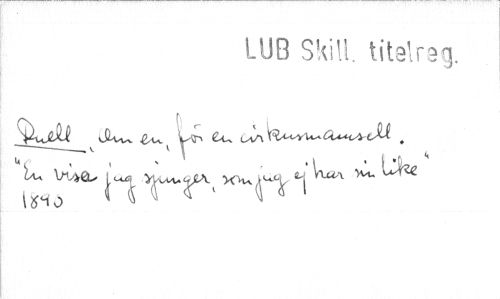 LUB Skill. titelreg.
Duell, Om en, för en cirkusmamsell.
"En visa jag sjunger, som jag ej har sin like"
1890